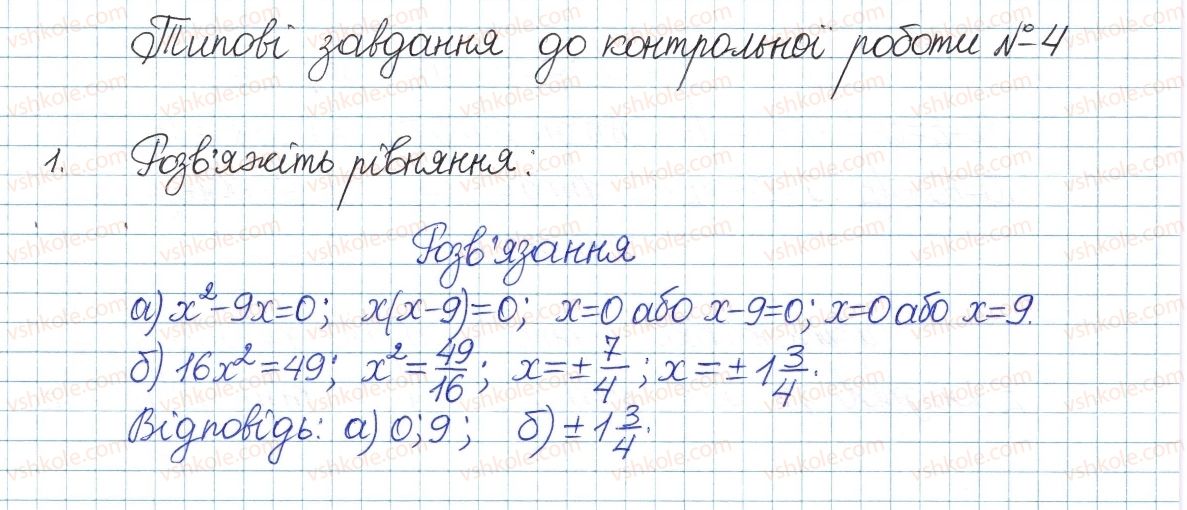 Типові завдання до контрольної роботи №4
1. Розв'яжіть рівняння:
Розв'язання
а) x²-9x=0; x(x-9)=0; x=0 або x-9=0; x=0 або x=9.
б) 16x²=49; x²=49/16; x=±7/4; x=±1 3/4.
Відповідь: а) 0; 9; б) ±1 3/4.